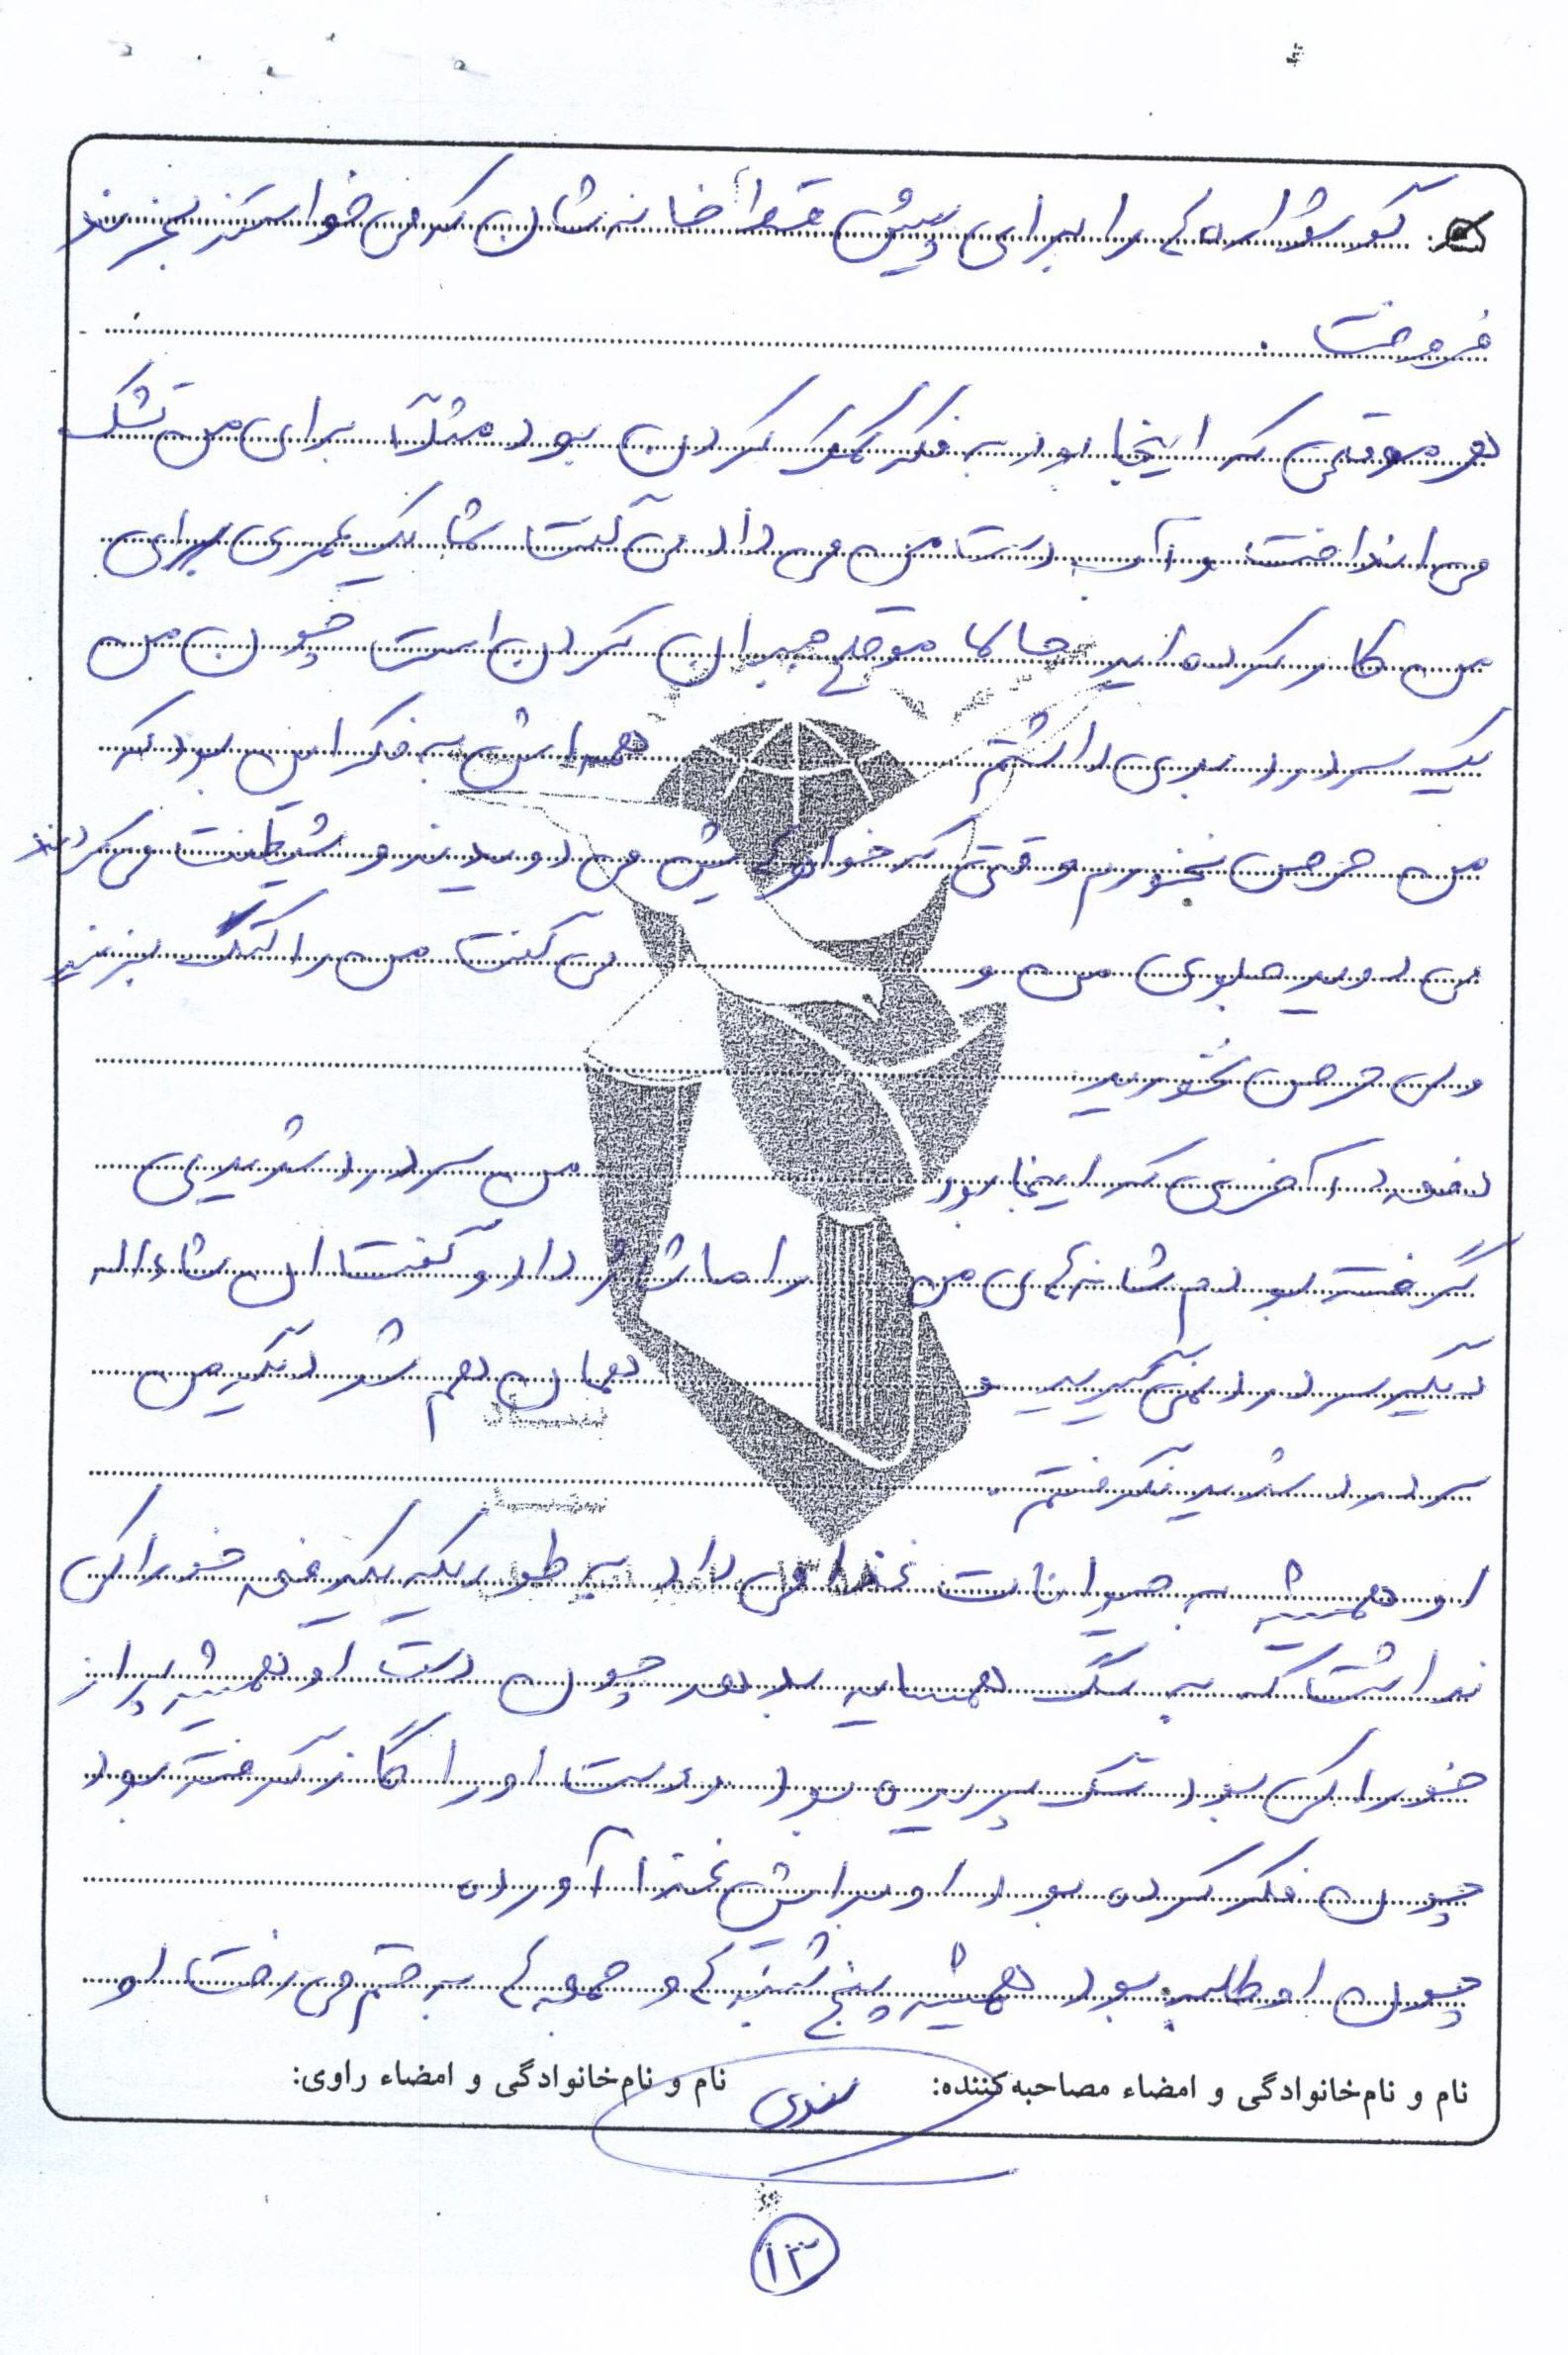 گوشواره ها را برای پیش قسط خانه شان که می خواستند بخرند
فروخت .
هر موقعی که اینجا بود به فکر کمک کردن بود مثلاً برای من تشک
می انداخت و آب دست من می داد می گفت شما یک عمری برای
من کار کرده اید حالا موقع جبران کردن است چون من
یک سردرد بدی داشتم همه اش به فکر این بود که
من حرص نخورم وقتی که خواهرهایش می دویدند و شیطنت می کردند
می دوید جلوی من و می گفت من را کتک بزنید
ولی حرص نخورید
دفعه آخری که اینجا بود من سردرد شدیدی
گرفته بودم شانه های من را ماساژ داد و گفت ان شاءالله
دیگر سردرد نمی گیرید و همان هم شد دیگر من
سردرد شدید نگرفتم .
او همیشه به حیوانات غذا می داد به طوریکه یکدفعه خوراکی
نداشت که به سگ همسایه بدهد چون دست او همیشه پر از
خوراکی بود سگ پریده بود دست او را گاز گرفته بود
چون فکر کرده بود او برایش غذا آورده
چون او طلبه بود همیشه پنج شنبه ها و جمعه ها به قم می رفت او
نام و نام‌خانوادگی و امضاء مصاحبه‌کننده: نام و نام‌خانوادگی و امضاء راوی:
۱۳